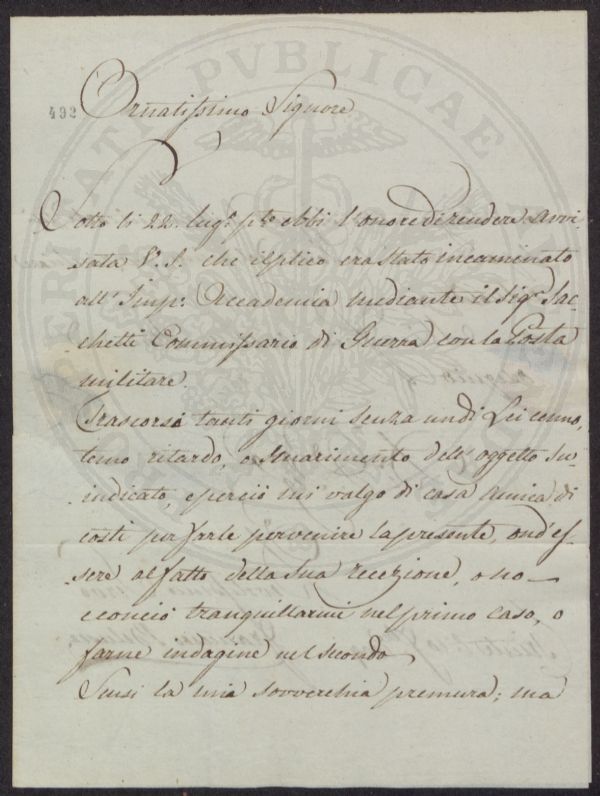 492
Ornatissimo Signore
Sotto li 22. lug.o p.to ebbi l'onore di rendere avvi-
sata V. S. che il plico era stato incaminato
all'Imp: Accademia mediante il Sig.r Sac-
chetti Commissario di Guerra con la Posta
militare.
Trascorsi tanti giorni senza un di Lei cenno,
temo ritardo, o smarimento dell'oggetto su-
indicato, e perciò mi valgo di casa amica di
costì per farle pervenire la presente, ond'es-
sere al fatto della sua recezione, o no
e con ciò tranquillarmi nel primo caso, o
farne indagine nel secondo.
Scusi la mia sovverchia premura; ma